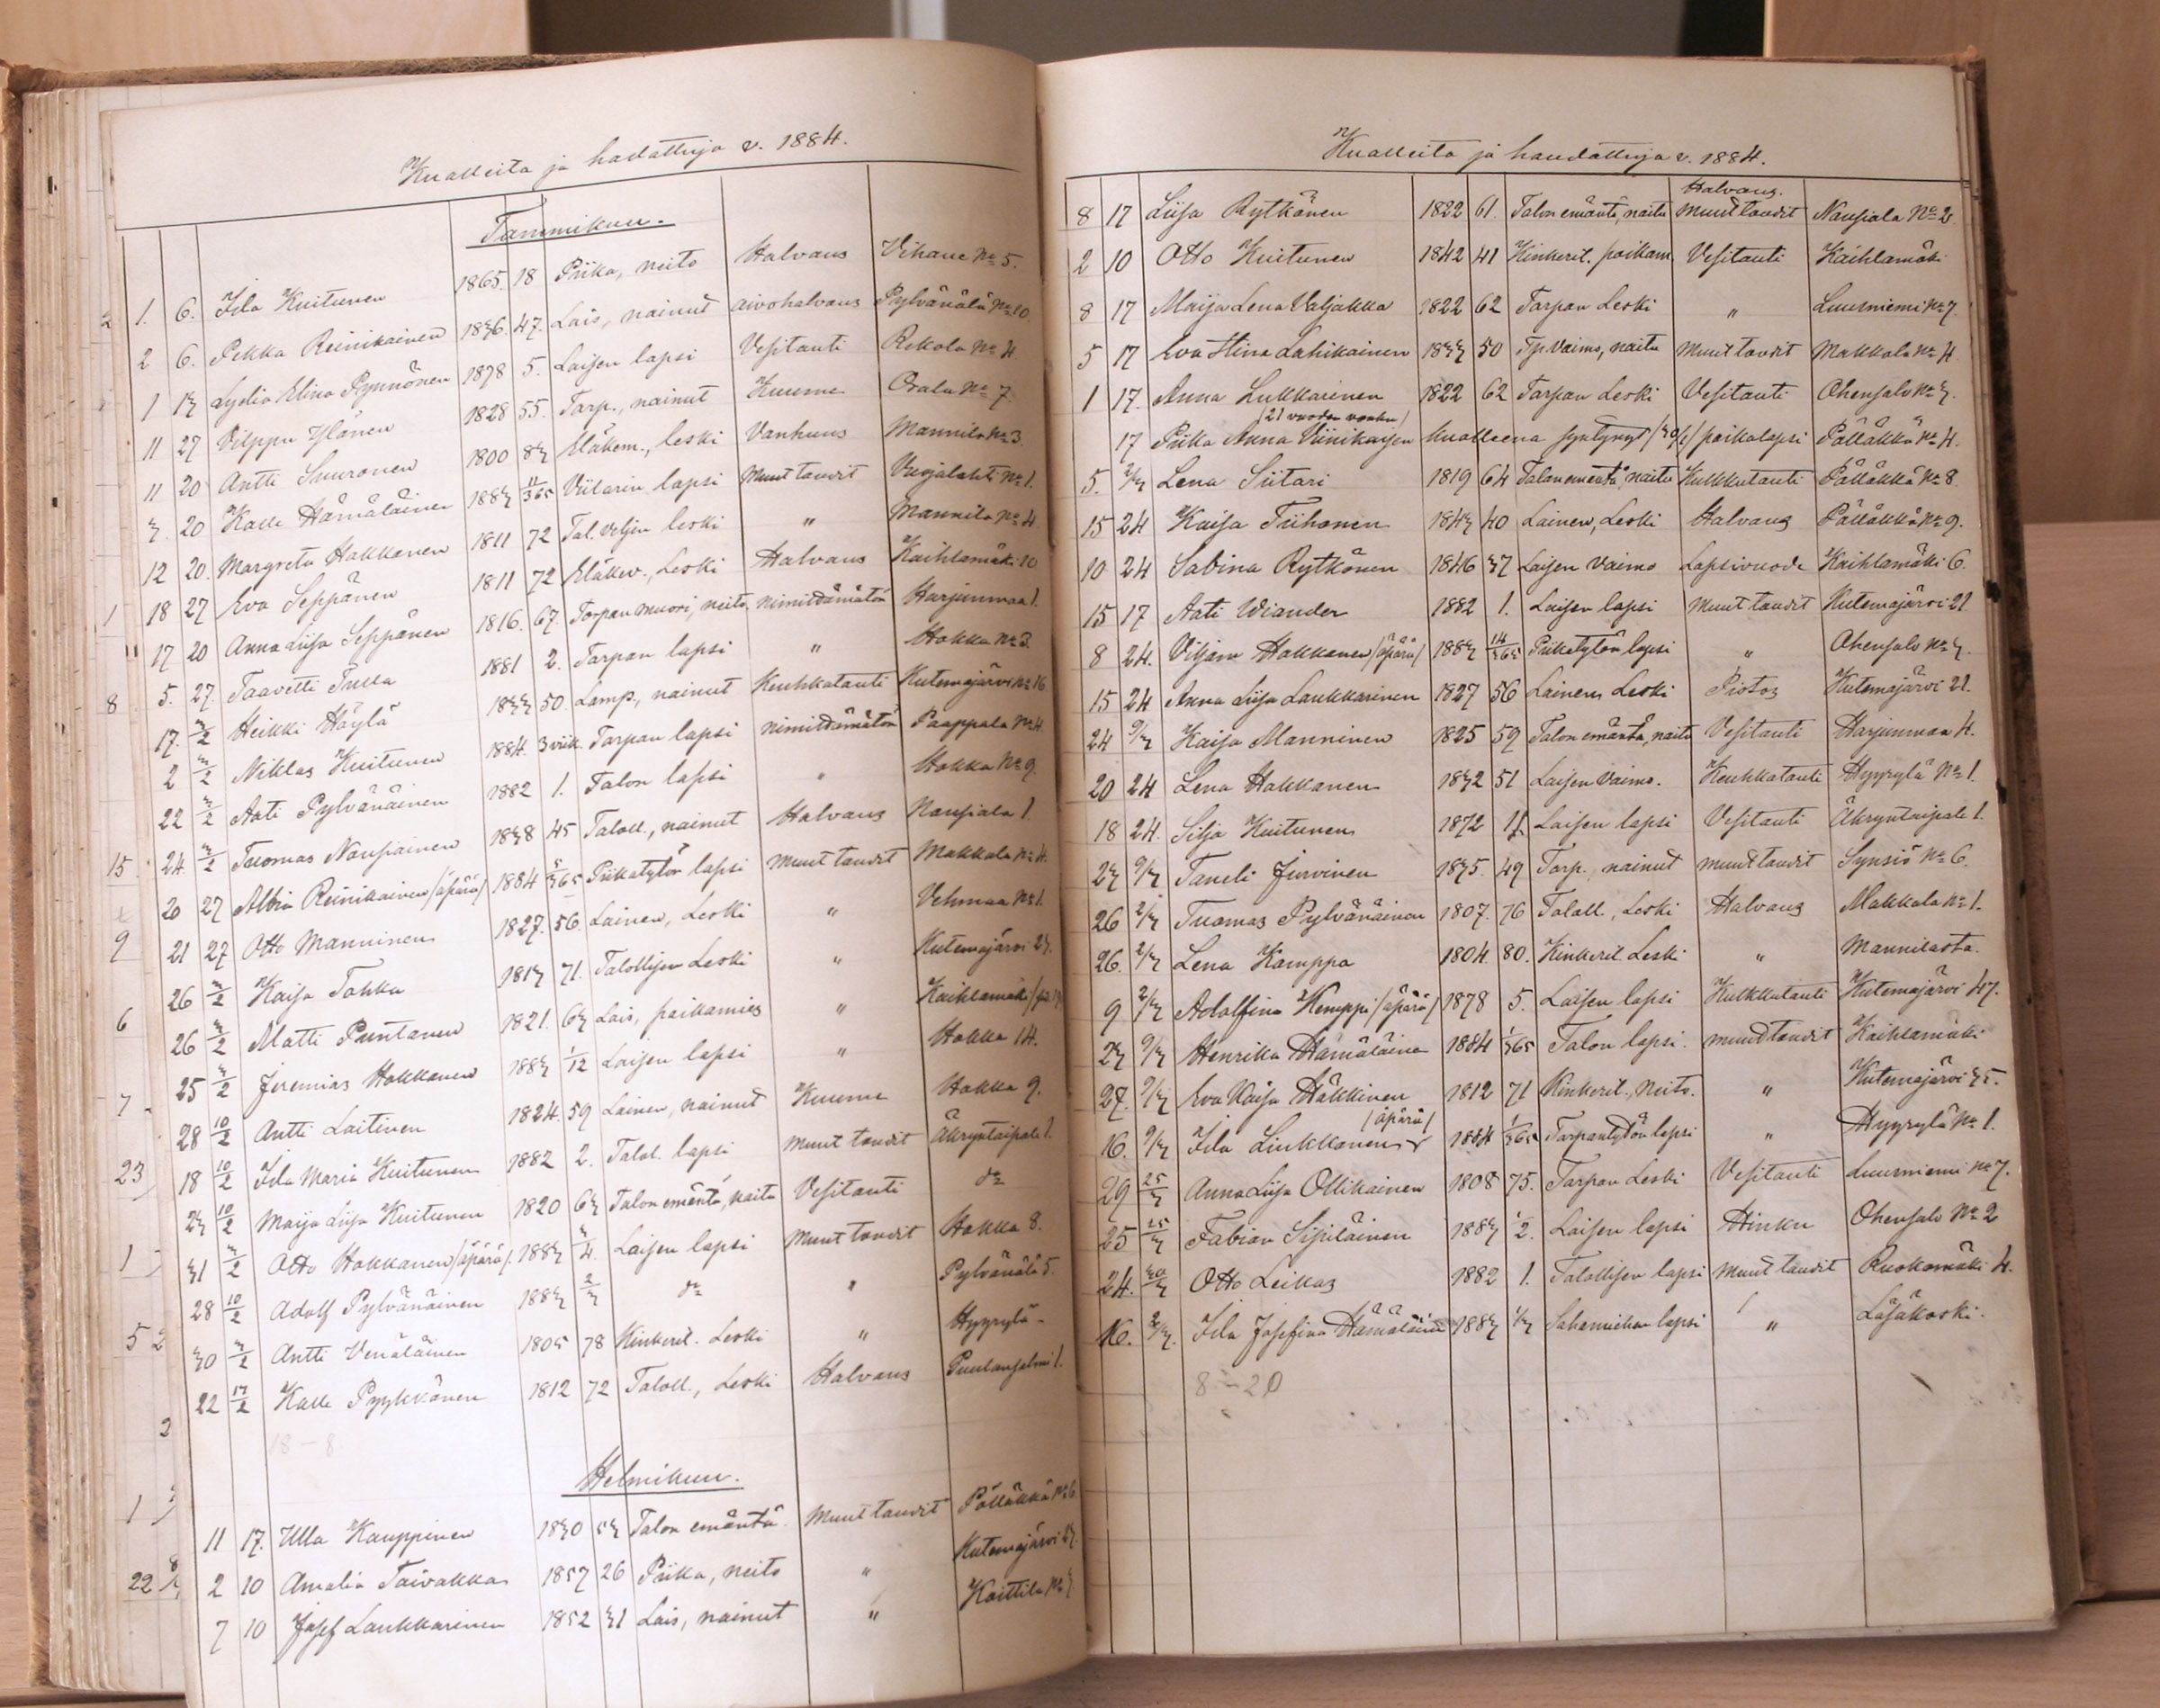 Kuolleita ja haudattuja v. 1884.
Tammikuu.
1. 6. Ida Kuitunen 1865. 18 Piika, neito Halvaus Vihane No 5.
2 6. Pekka Reinikainen 1836. 47. Lois, nainut aivohalvaus Pylvänälä No 10
1 13 Lydia Elina Pynnönen 1878 5. Loisen lapsi Vesitauti Rekola No 4
11 27 Vilppu Ylönen 1828 55. Torp., nainut Kuume Orala No 7.
11 20 Antti Suuronen 1800 83 Eläkem., leski Vanhuus Mannila No 3
3. 20 Kalle Hämäläinen 1883 11/365 Viitarin lapsi Muut taudit Vuojalahti No 1.
12 20. Margreta Hokkanen 1811 72 Tal. veljen leski " Mannila No 4.
18 27 Eva Seppänen 1811 72 Eläkev., Leski Halvaus Kaihlamäki 10
17 20 Anna Liisa Seppänen 1816. 67. Torpan muori, neito nimittämätön Harjunmaa 1.
5. 27. Taavetti Tulla 1881 2. Torpan lapsi " Hokka No 3.
17. 3/2 Heikki Höylä 1833 50. Lamp., nainut Keuhkotauti Kutemajärvi No 16
2 3/2 Niklas Kuitunen 1884. 3 viik. Torpan lapsi nimittämätön Paappala No 4.
22 3/2 Aati Pylvänäinen 1882 1. Talon lapsi " Hokka No 9.
24 3/2 Tuomas Nousiainen 1838 45 Taloll., nainut Halvaus Nousiala 1.
20 27 Albin Reinikainen /äpärä/ 1884 5/365 Piikatytön lapsi Muut taudit Makkola No 4.
21 27 Otto Manninen 1827. 56. Loinen, Leski " Vehmaa No 1.
26 3/2 Kaisa Tokka 1813 71. Talollisen Leski " Kutemajärvi 23.
26 3/2 Matti Puntanen 1821. 63 Lois, paikamies " Kaihlamäki
25 3/2 Jeremias Hokkanen 1883 1/12 Loisen lapsi " Hokka 14.
28 10/2 Antti Laitinen 1824. 59 Loinen, nainut Kuume Hokka 9.
18 10/2 Ida Maria Kuitunen 1882 2. Talol. lapsi Muut taudit Äkryntaipale 1.
23 10/2 Maija Liisa Kuitunen 1820 63 Talon emäntä, naitu Vesitauti do
31 3/2 Otto Hokkanen /äpärä/. 1883 3/4. Loisen lapsi Muut taudit Hokka 8.
28 10/2 Adolf Pylvänäinen 1883 2/3 do " Pylvänälä 5.
30 3/2 Antti Venäläinen 1805 78 Kinkeril. Leski " Hyyrylä.
22 17/2 Kalle Pyykkönen 1812 72 Taloll., Leski Halvaus Puulansalmi 1.
18 – 8
Helmikuu.
11 17. Ulla Kauppinen 1830 53 Talon emäntä Muut taudit Pölläkkä No 6
2 10 Amalia Taivakka 1857 26 Piika, neito " Kutemajärvi 23.
7 10 Josef Laukkarinen 1852 31 Lois, nainut " Koittila No 3
Kuolleita ja haudattuja v. 1884.
8 17 Liisa Rytkönen 1822 61. Talon emäntä, naitu Halvaus. Muut taudit Nousiala No 2
2 10 Otto Kuitunen 1842 41 Kinkeril. poikam. Vesitauti Kaihlamäki
8 17 Maija Lena Valjakka 1822 62 Torpan Leski " Luusniemi No 7
5 17 Eva Stina Lahikainen 1833 50 Tp. vaimo, naitu Muut taudit Makkola No 4.
1 17. Anna Lukkarinen 1822 62 Torpan Leski Vesitauti Ohensalo No 3.
/21 vuoden vanha/
17 Piika Anna Viinikaisen kuolleena syntynyt /30/1/ poikalapsi Pölläkkä No 4.
5. 2/3 Lena Siitari 1819 64 Talon emäntä, naitu Kulkkutauti Pölläkkä No 8.
15 24 Kaisa Tiihonen 1843 40 Loinen, Leski Halvaus Pölläkkä No 9.
10 24 Sabina Rytkönen 1846 37 Loisen vaimo Lapsivuode Kaihlamäki 6.
15 17 Aati Wiander 1882 1. Loisen lapsi Muut taudit Kutemajärvi 21
8 24. Viljam Hokkanen /äpärä/ 1883 14/365 Piikatytön lapsi " Ohensalo No 3.
15 24 Anna Liisa Laukkarinen 1827 56 Loinen, Leski Pistos Kutemajärvi 21.
24 9/3 Kaisa Manninen 1825 59 Talon emäntä, naitu Vesitauti Harjunmaa 4.
20 24 Lena Hokkanen 1832 51 Loisen vaimo. Keuhkotauti Hyyrylä No 1.
18 24. Silja Kuitunen 1872 11 Loisen lapsi Vesitauti Äkryntaipale 1.
23 9/3 Taneli Jurvinen 1835. 49 Torp., nainut muut taudit Synsiö No 6.
26 2/3 Tuomas Pylvänäinen 1807. 76 Taloll., Leski Halvaus Makkola No 1.
26. 2/3 Lena Kamppa 1804. 80. Kinkeril Leski " Mannilasta.
9 2/3 Adolfina Kemppi /äpärä/ 1878 5. Loisen lapsi Kulkkutauti Kutemajärvi 47.
23 9/3 Henrika Hämäläinen 1884 1/365 Talon lapsi. muut taudit Kaihlamäki
27. 9/3 Eva Kaisa Häkkinen 1812 71 Kinkeril., neito. " Kutemajärvi 35.
16. 9/3 Ida Liukkonen /äpärä/ 1884 1/365 Torpantytön lapsi " Hyyrylä No 1.
29 25/3 Anna Liisa Ollikainen 1808 75. Torpan Leski Vesitauti Luusniemi No 7.
25 25/3 Fabian Sipiläinen 1883 1/2. Loisen lapsi Hinku Ohensalo No 2
24. 30/3 Otto Leikas 1882 1. Talollisen lapsi Muut taudit Ruokomäki 4.
16. 2/3. Ida Josefina Hämäläinen 1883 1/3 Sahamiehen lapsi " Läsäkoski.
8 – 20